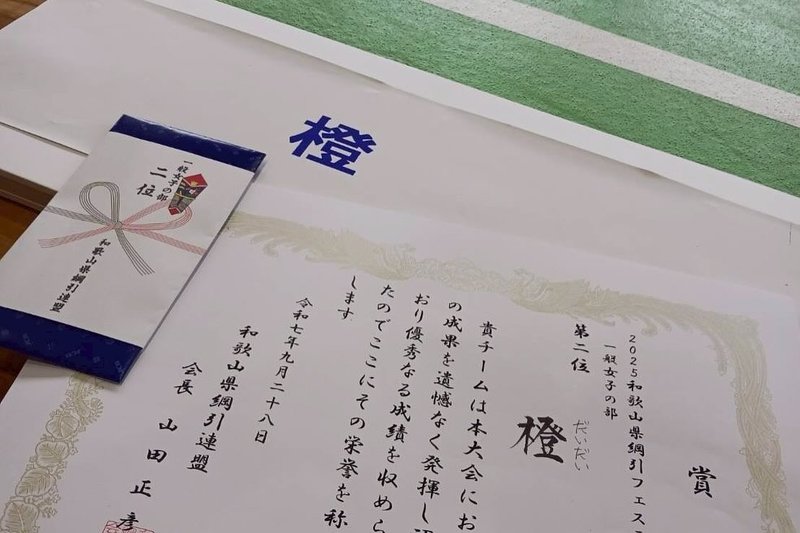 橙
一般女子の部
二位
和歌山県綱引連盟
賞
2025和歌山県綱引フェス
一般女子の部
第二位
橙
だいだい
貴チームは本大会にお
の成果を遺憾なく発揮し
おり優秀なる成績を収めら
たのでここにその栄誉を称
します
令和七年九月二十八日
和歌山県綱引連盟
会長 山田正彦